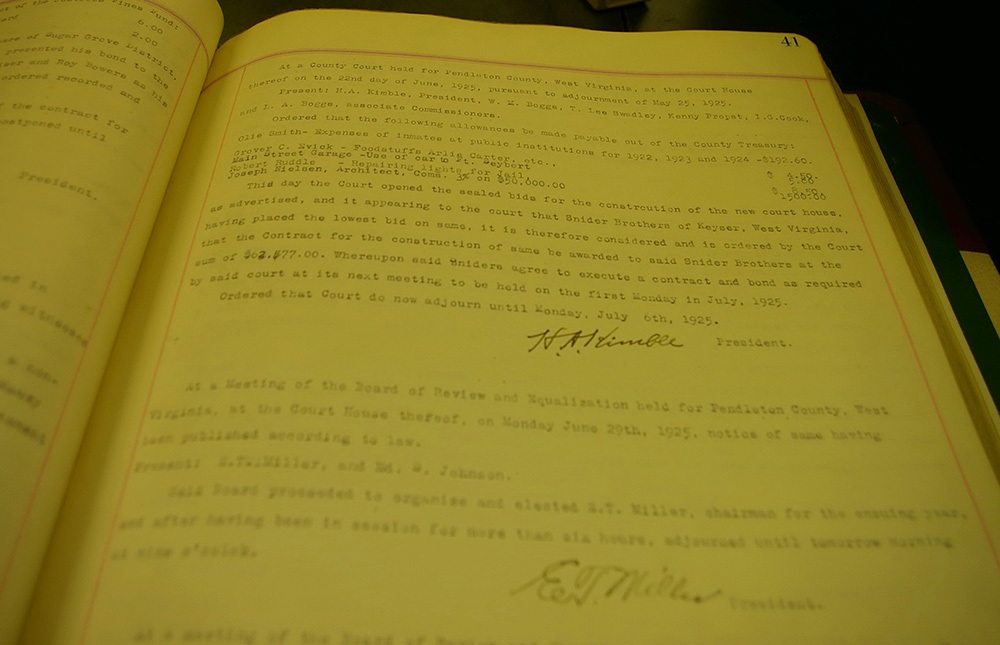 6.00
2.00
of Sugar Grove District,
presented his bond to the
and Roy Bowers as his
ordered recorded and
the contract for
postponed until
President.
41
At a County Court held for Pendleton County, West Virginia, at the Court House
thereof on the 22nd day of June, 1925, pursuant to adjournment of May 25, 1925.
Present: H.A. Kimble, President, W. E. Boggs, T. Lee Swadley, Kenny Propst, I.G.Cook,
and L. A. Boggs, associate Commissioners.
Ordered that the following allowances be made payable out of the County Treasury:
Olie Smith- Expenses of inmates at public institutions for 1922, 1923 and 1924 -$192.60.
Grover C. Evick - Foodstuffs Arlie Carter, etc., $ 4.50.
Main Street Garage -Use of car to Ft. Seybert 5.00.
Robert Ruddle - Repairing lights for Jail,
Joseph Nielsen, Architect, Coms. 3% on $50,000.00 1500.00
This day the Court opened the sealed bids for the constrcution of the new court house,
as advertised, and it appearing to the court that Snider Brothers of Keyser, West Virginia,
having placed the lowest bid on same, it is therefore considered and is ordered by the Court
that the Contract for the construction of same be awarded to said Snider Brothers at the
sum of Whereupon said Sniders agree to execute a contract and bond as required
by said court at its next meeting to be held on the first Monday in July, 1925.
Ordered that Court do now adjourn until Monday, July 6th, 1925.
H.A. Kimble President.
At a Meeting of the Board of Review and Equalization held for Pendleton County, West
Virginia, at the Court House thereof, on Monday June 29th, 1925, notice of same having
been published according to law.
Present: E.T. Miller, and Ed. S. Johnson.
Said Board proceeded to organize and elected E.T. Miller, chairman for the ensuing year,
and after having been in session for more than six hours, adjourned until tomorrow morning
at nine o'clock.
E.T. Miller President.
At a meeting of the Board of Review and